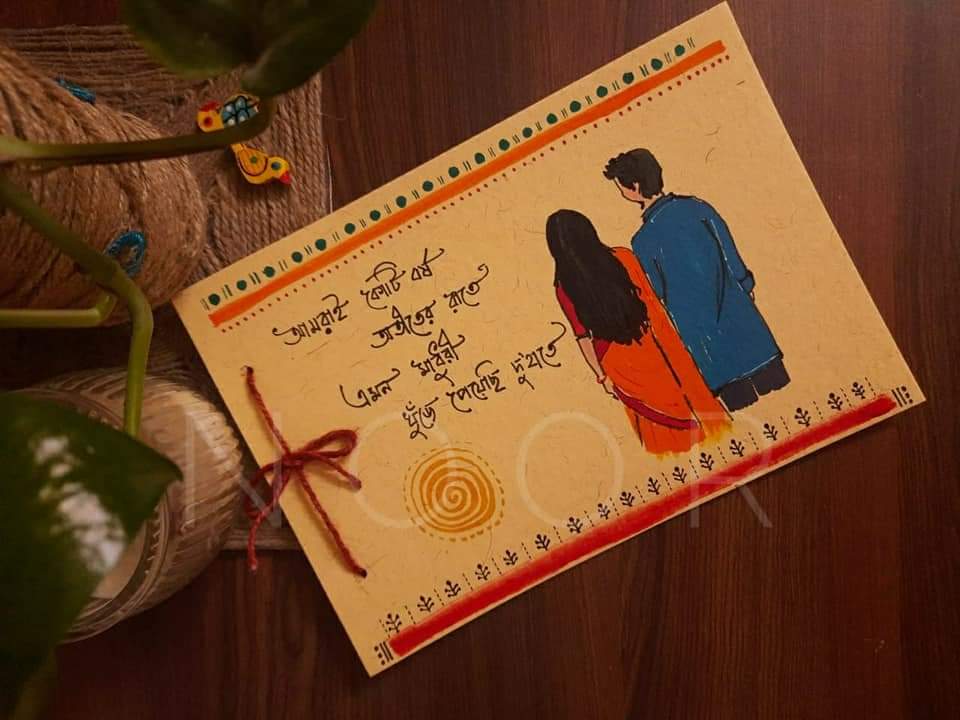 আমরাই কোটি বর্ষ
অতীতের রাতে
এমন মাধুরী
খুঁজে পেয়েছি দু'হাতে
NOOR